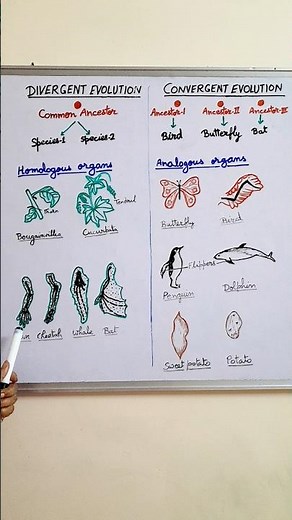 DIVERGENT EVOLUTION
Common Ancestor
Species-1 Species-2
Homologous organs
Tendril
Bougainvillea Cucurbita
Cheetah Whale Bat
CONVERGENT EVOLUTION
Ancestor-I Ancestor-II Ancestor-III
Bird Butterfly Bat
Analogous organs
Butterfly Bird
Flippers
Penguin Dolphin
Sweet potato Potato